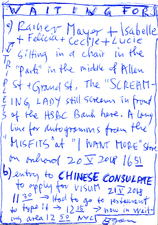 WAITING FOR
a) Rainer Mayer + Isabelle
+ Felicia + Cecile + Lucie
Sitting in a chair in the
"park" in the middle of Allen
St + Grand St. The "SCREAM-
ING LADY still screams in front
of the HSBC Bank here. A long
line for autogramms from the
"MISFITS" at "I WANT MORE" store
on 20 V 2018 16 51
b) entry to CHINESE CONSULATE
to apply for VISUM 21 V 2018
11 30 → Had to go to
to type it → 12 15 → now in wait-
ing area 12 50 NYC